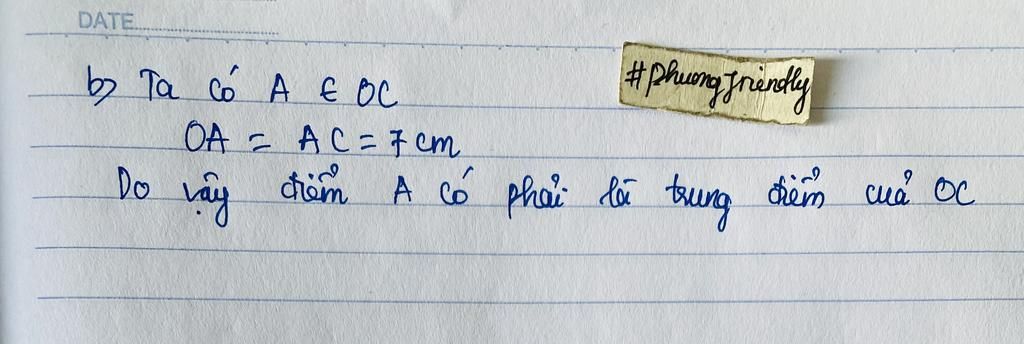 DATE
#phuongfriendly
b) Ta có A ∈ OC
OA = AC = 7 cm
Do vậy điểm A có phải là trung điểm của OC